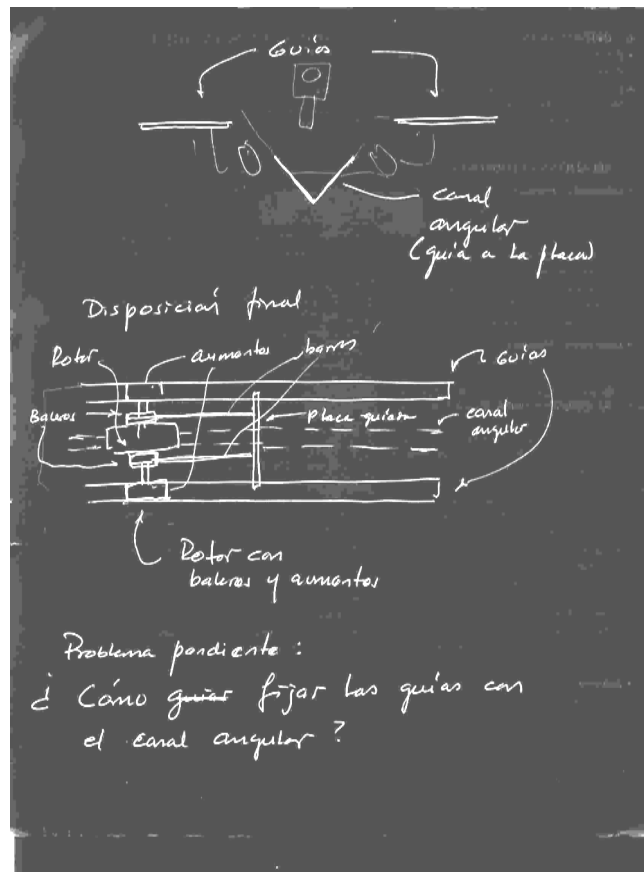 Guías
canal
angular
(guía a la placa)
Disposición final
Rotor
aumentos
barras
Guías
Baleros
Placa guiasa
canal
angular
Rotor con
baleros y aumentos
Problema pendiente:
¿Cómo guiar fijar las guías con
el canal angular?